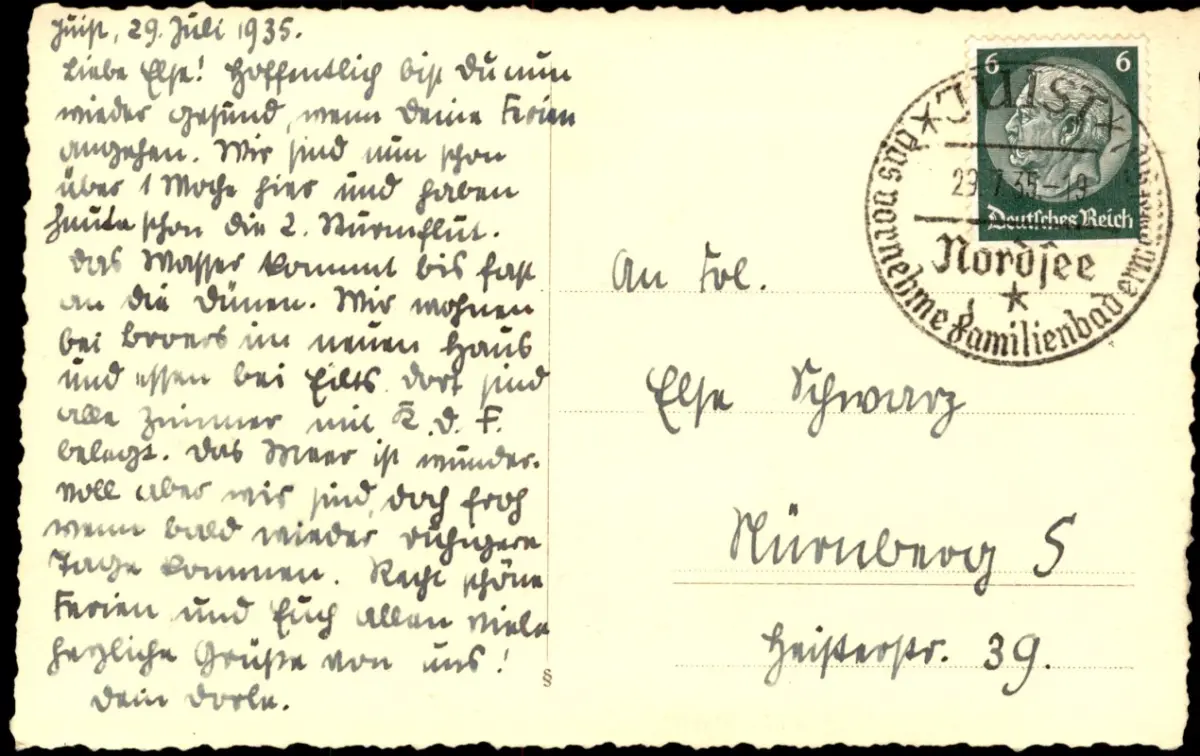 Juist, 29. Juli 1935.
Liebe Else! Hoffentlich bist Du nun
wieder gesund, wenn Deine Ferien
angehen. Wir sind nun schon
über 1 Woche hier und haben
heute schon die 2. Sturmflut.
Das Wasser kommt bis fast
an die Dünen. Wir wohnen
bei Broers im neuen Haus
und essen bei Eilts. Dort sind
alle Zimmer mit K.D.F.
belegt. Das Meer ist wunder-
voll aber wir sind doch froh
wenn bald wieder ruhigere
Tage kommen. Recht schöne
Ferien und Euch allen viele
herzliche Grüße von uns!
Dein Dorle.
§
An Frl.
Else Schwarz
Nürnberg S
Heisterstr. 39.
6 6
Deutsches Reich
JUIST
29.7.35-19
Nordsee
das vornehme Familienbad